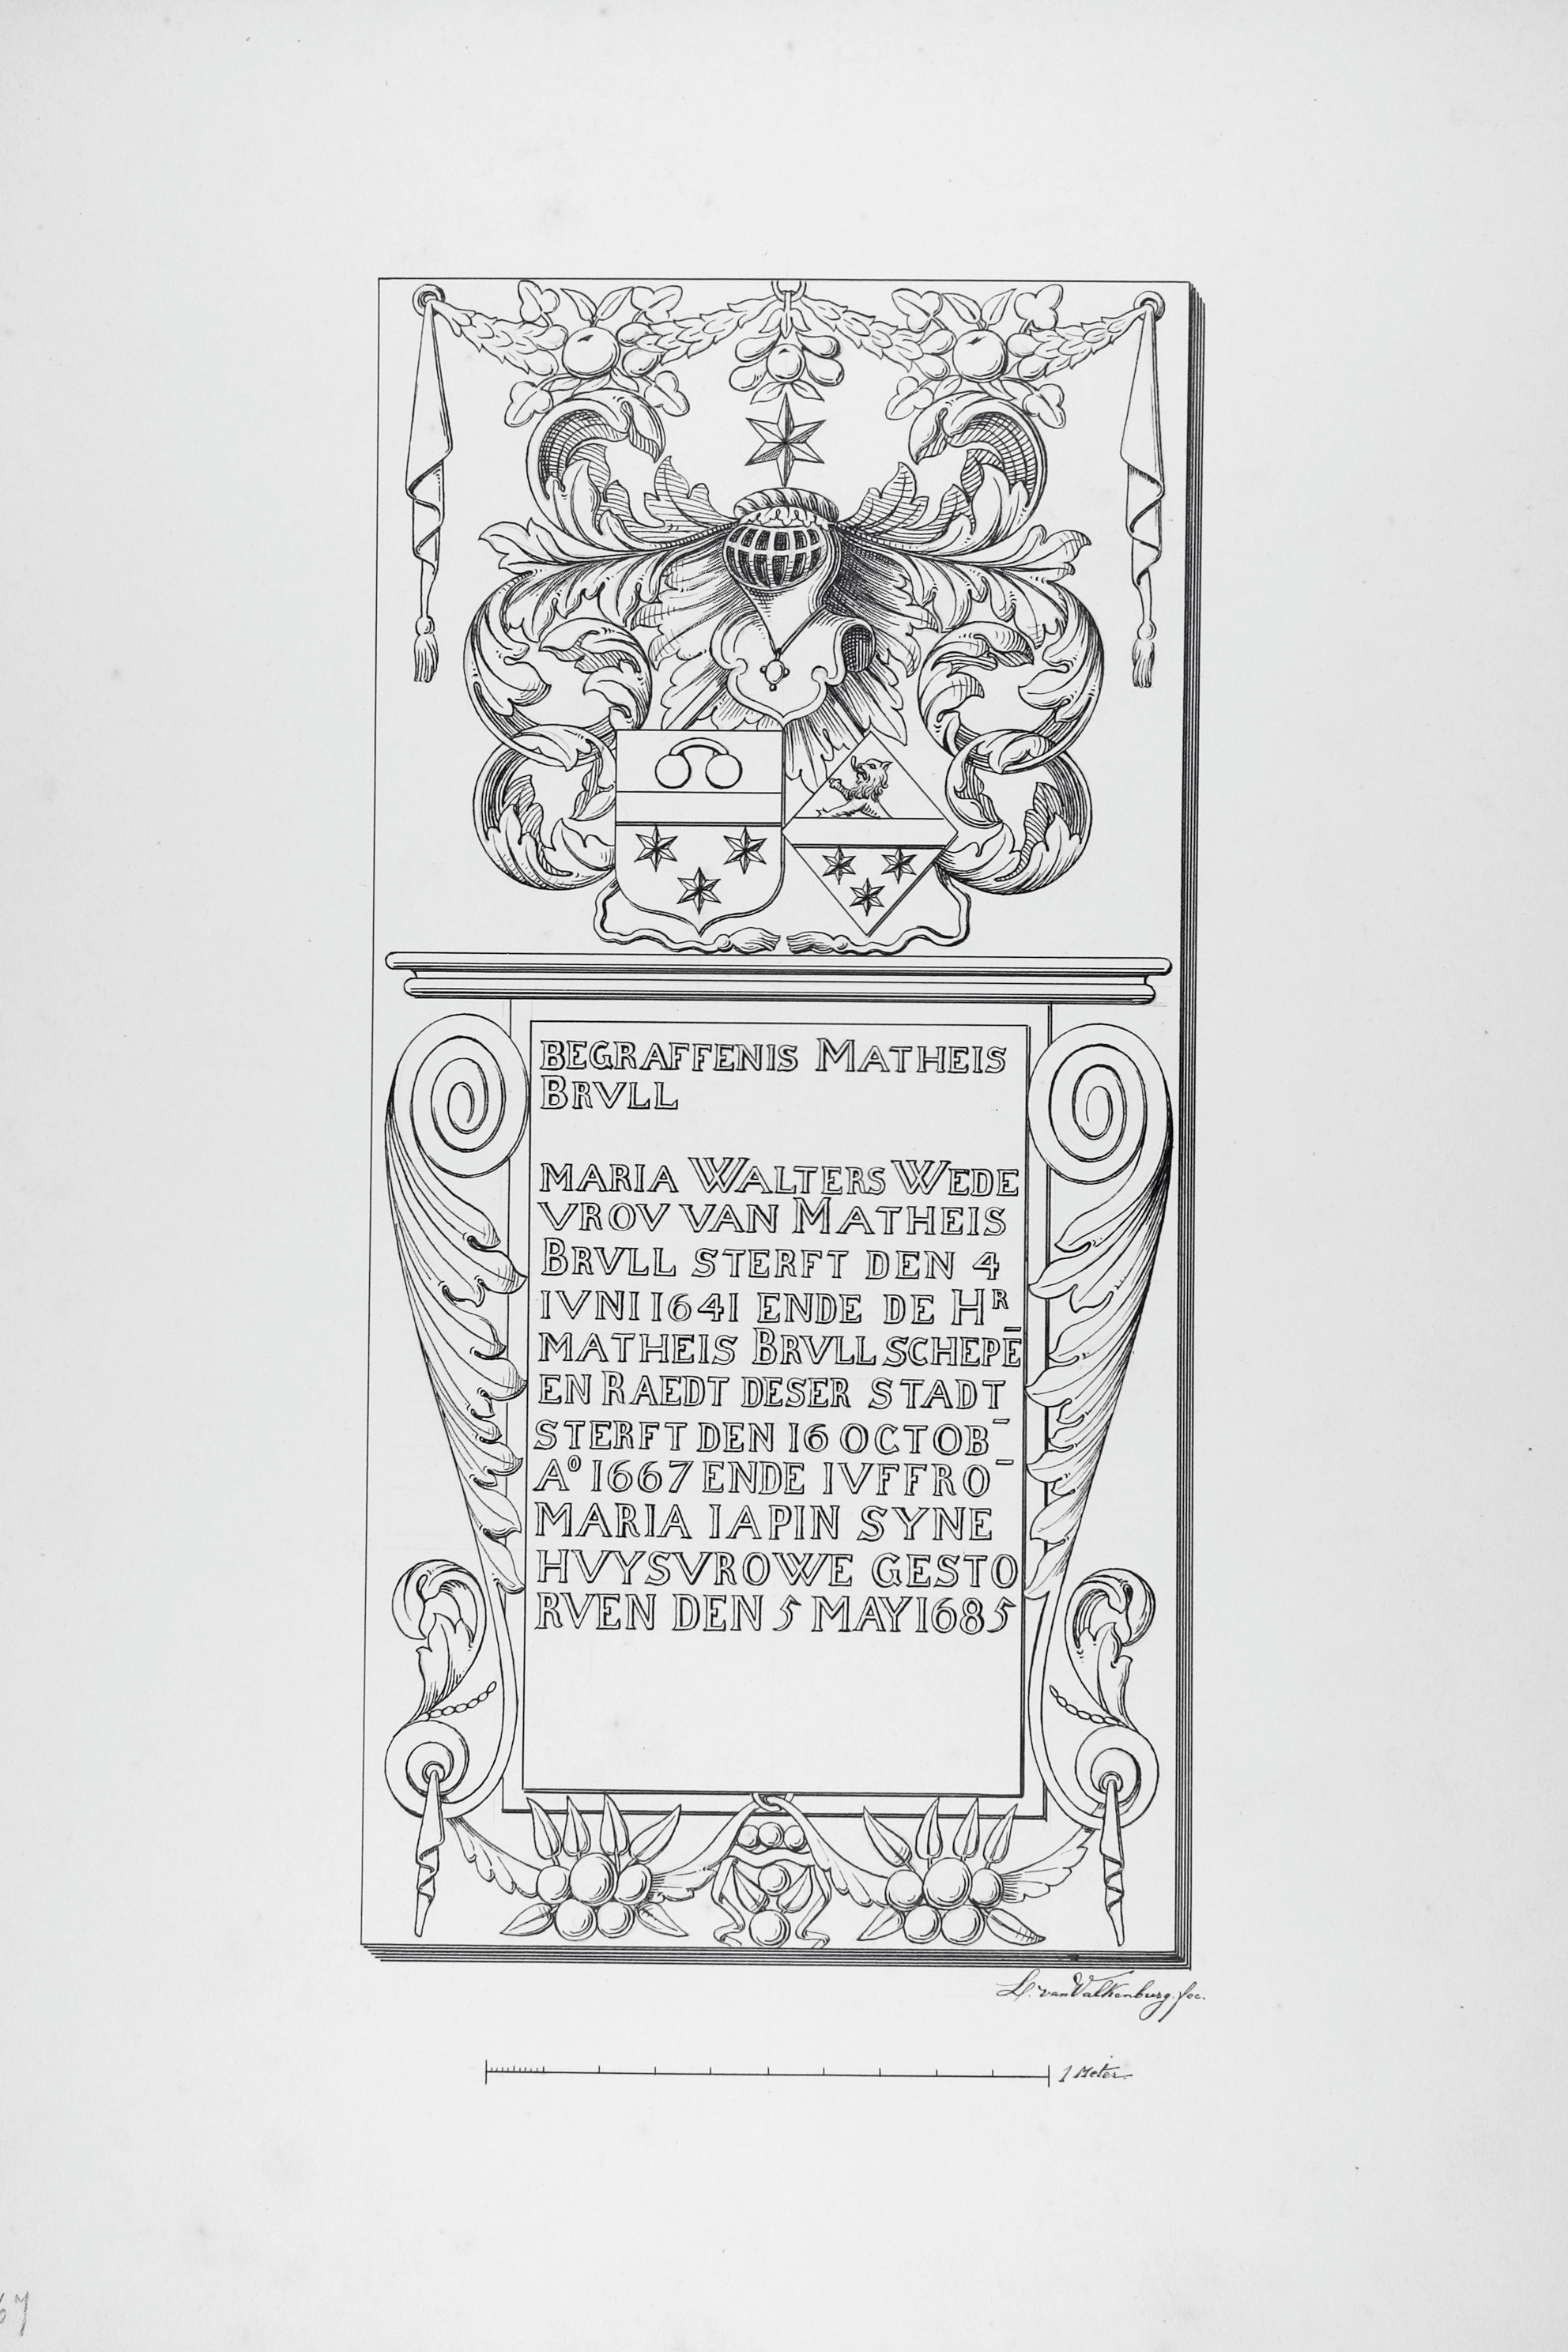 BEGRAFFENIS MATHEIS
BRVLL
MARIA WALTERS WEDE
VROV VAN MATHEIS
BRVLL STERFT DEN 4
IVNI 1641 ENDE DE Hᴿ
MATHEIS BRVLL SCHEPĒ
EN RAEDT DESER STADT
STERFT DEN 16 OCTOB‾
Aº 1667 ENDE IVFFRO‾
MARIA IAPIN SYNE
HVYSVROWE GESTO
RVEN DEN 5 MAY 1685
L. van Valkenburg. fec.
1 Meter.
67